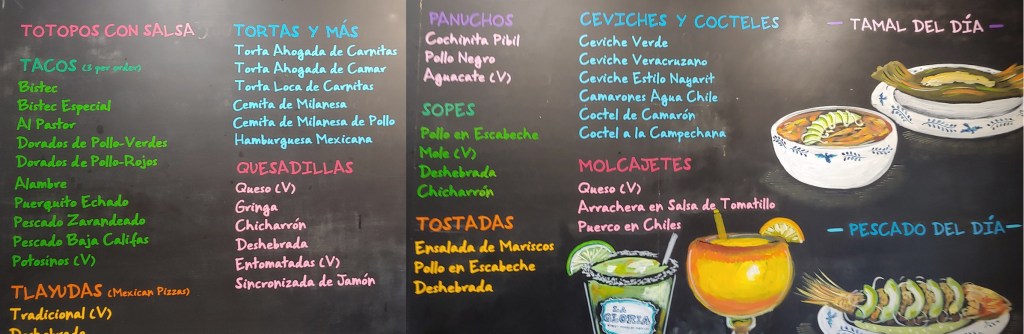 TOTOPOS CON SALSA
TACOS (3 per order)
Bistec
Bistec Especial
Al Pastor
Dorados de Pollo-Verdes
Dorados de Pollo-Rojos
Alambre
Puerquito Echado
Pescado Zarandeado
Pescado Baja Califas
Potosinos (V)
TLAYUDAS (Mexican Pizzas)
Tradicional (V)
Deshebrada
TORTAS Y MÁS
Torta Ahogada de Carnitas
Torta Ahogada de Camar
Torta Loca de Carnitas
Cemita de Milanesa
Cemita de Milanesa de Pollo
Hamburguesa Mexicana
QUESADILLAS
Queso (V)
Gringa
Chicharrón
Deshebrada
Entomatadas (V)
Sincronizada de Jamón
PANUCHOS
Cochinita Pibil
Pollo Negro
Aguacate (V)
SOPES
Pollo en Escabeche
Mole (V)
Deshebrada
Chicharrón
TOSTADAS
Ensalada de Mariscos
Pollo en Escabeche
Deshebrada
CEVICHES Y COCTELES
Ceviche Verde
Ceviche Veracruzano
Ceviche Estilo Nayarit
Camarones Agua Chile
Coctel de Camarón
Coctel a la Campechana
MOLCAJETES
Queso (V)
Arrachera en Salsa de Tomatillo
Puerco en Chiles
LA
GLORIA
— TAMAL DEL DÍA —
— PESCADO DEL DÍA —